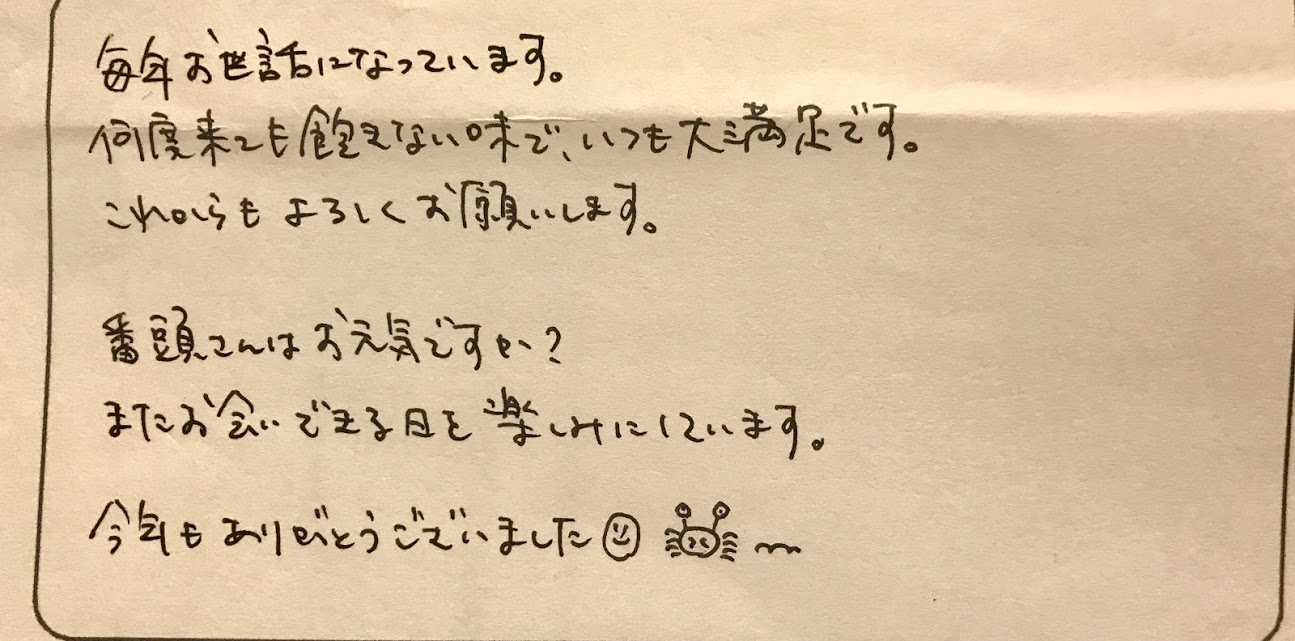 毎年お世話になっています。
何度来ても飽きない味で、いつも大満足です。
これからもよろしくお願いします。
番頭さんはお元気ですか?
またお会いできる日を楽しみにしています。
今年もありがとうございました